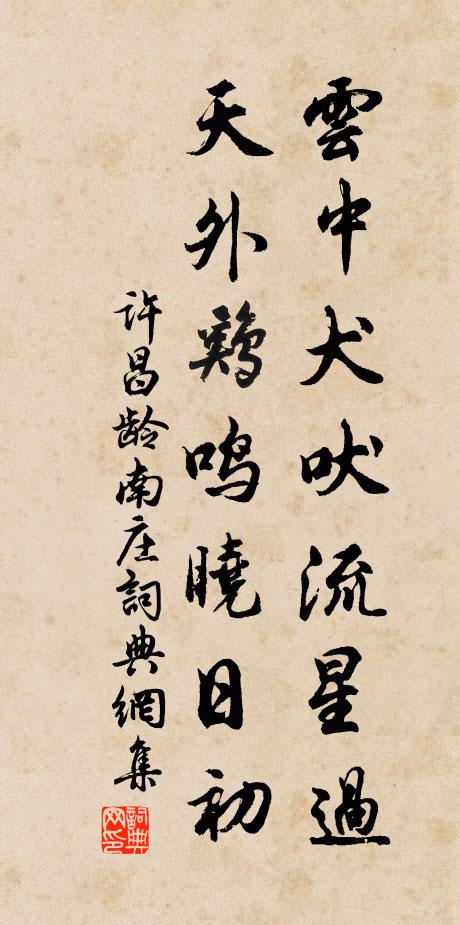 雲中犬吠流星過
天外鷄鳴曉日初
許昌齡南庄詞典網集
詞典网印